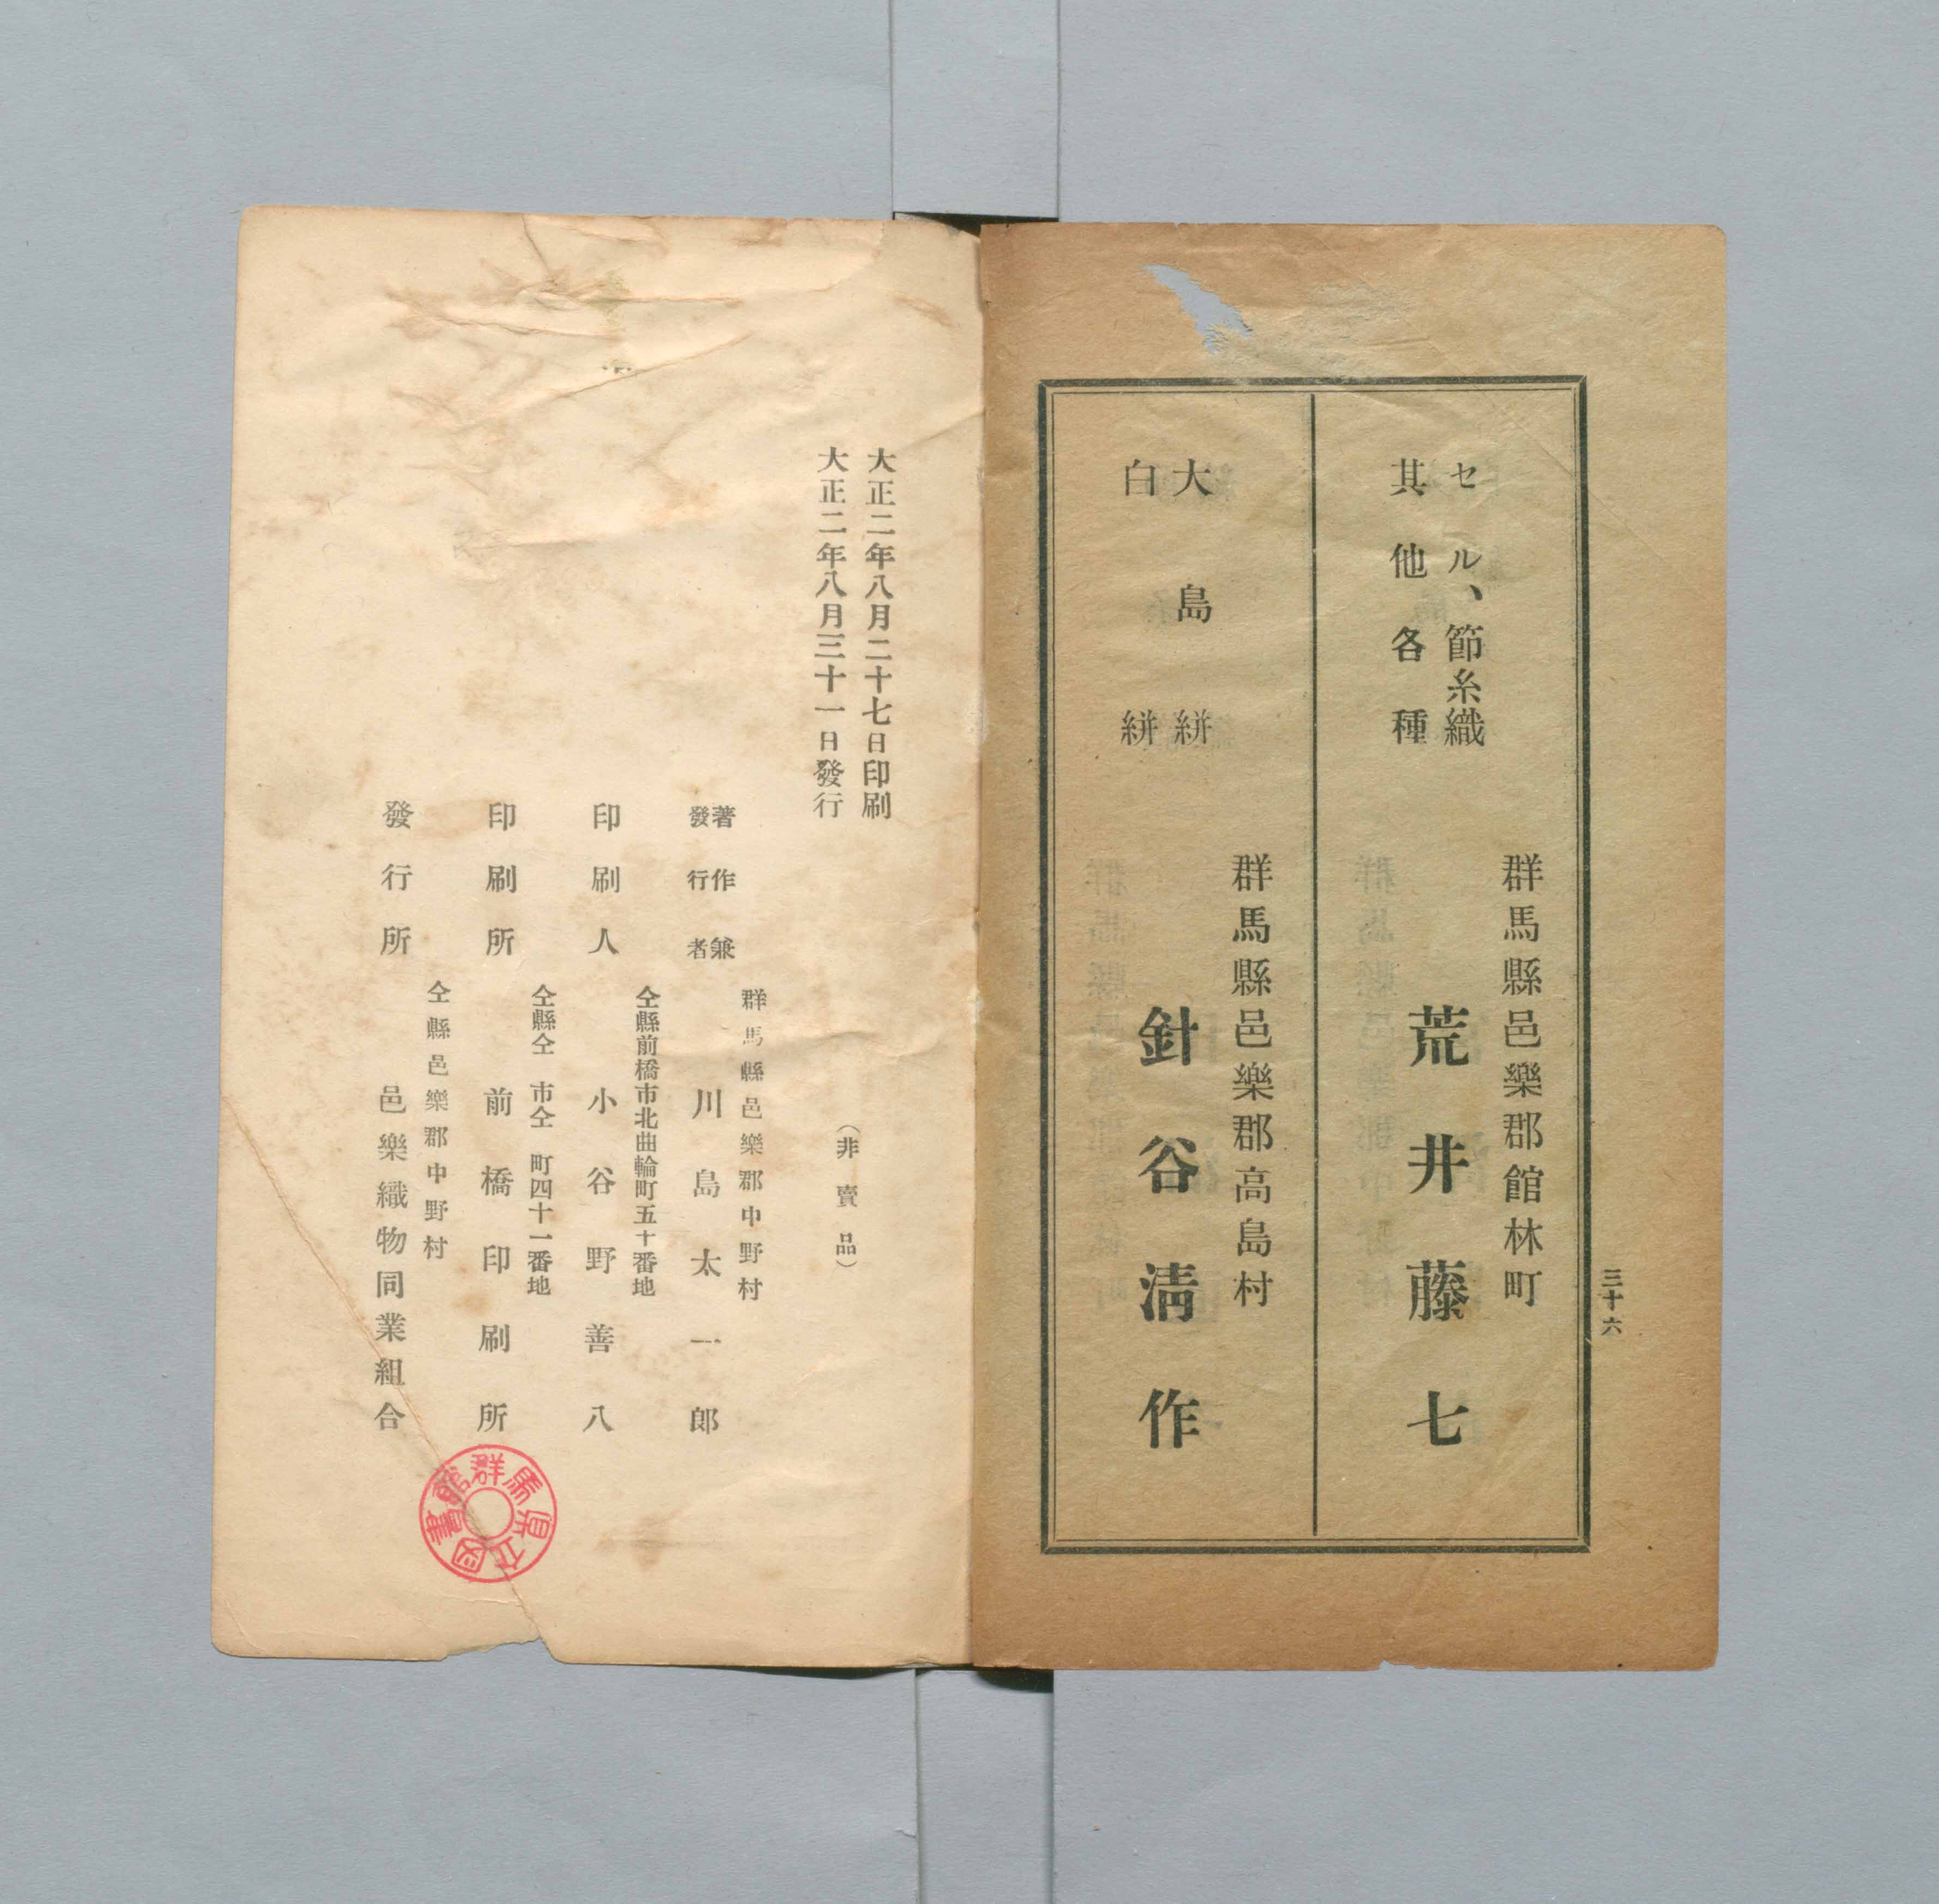 三十六
群馬縣邑樂郡館林町
セル、節糸織
其他各種
荒井藤七
群馬縣邑樂郡高島村
大島絣
白絣
針谷淸作
大正二年八月二十七日印刷
大正二年八月三十一日發行
（非賣品）
群馬縣邑樂郡中野村
著作兼
發行者
川島太一郎
仝縣前橋市北曲輪町五十番地
印刷人
小谷野善八
仝縣仝市仝町四十一番地
印刷所
前橋印刷所
仝縣邑樂郡中野村
發行所
邑樂織物同業組合
群馬県立図書館